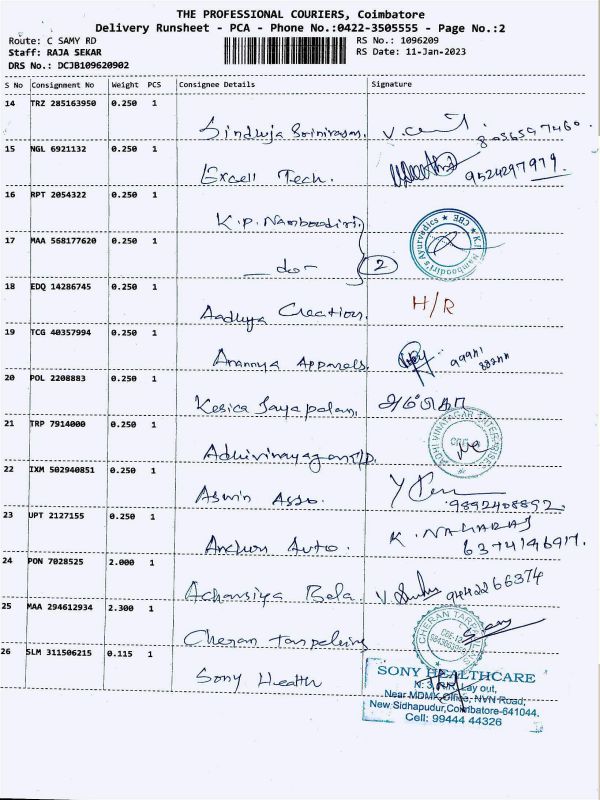 THE PROFESSIONAL COURIERS, Coimbatore
Delivery Runsheet - PCA - Phone No.:0422-3505555 - Page No.:2
Route: C SAMY RD
RS No.: 1096209
Staff: RAJA SEKAR
RS Date: 11-Jan-2023
DRS No.: DCJB109620902
S No Consignment No Weight PCS Consignee Details Signature
14 TRZ 285163950 0.250 1
Sindhuja Srinivasan.
15 NGL 6921132 0.250 1
Excell Tech. 9524297979.
16 RPT 2054322 0.250 1
K.P. Namboodiri
17 MAA 568177620 0.250 1
— do — 2
18 EDQ 14286745 0.250 1
Aadhya Creation. H/R
19 TCG 40357994 0.250 1
Anannya Apparels.
20 POL 2208883 0.250 1
Kesica Jayapalam.
21 TRP 7914000 0.250 1
22 IXM 502940851 0.250 1
Aswin Asso. 9892408892.
23 UPT 2127155 0.250 1
Anchor Auto. K. NAGARAJ
24 PON 7028525 2.000 1
Bala 9442266374
25 MAA 294612934 2.300 1
Cheran
26 SLM 311506215 0.115 1
Sony Health
SONY HEALTHCARE
Lay out,
Near MDMK Office, NVN Road,
New Sidhapudur, Coimbatore-641044.
Cell: 99444 44326